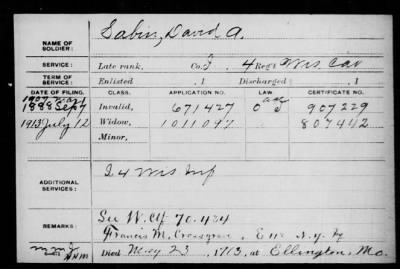 NAME OF SOLDIER: Sabin, David A.
SERVICE: Late rank, Co. F, 4 Reg't Wis Cav
TERM OF SERVICE: Enlisted , 1 Discharged , 1
DATE OF FILING. CLASS. APPLICATION NO. LAW CERTIFICATE NO.
1907
1888 Sep 7 Invalid, 671427 907229
1913 July 12 Widow, 1011097 807442
Minor,
ADDITIONAL SERVICES: I 4 Wis Inf
REMARKS: See W. Ctf 70.434
Francis M. E N.Y.
Died May 23, 1913, at Ellington, Mo.